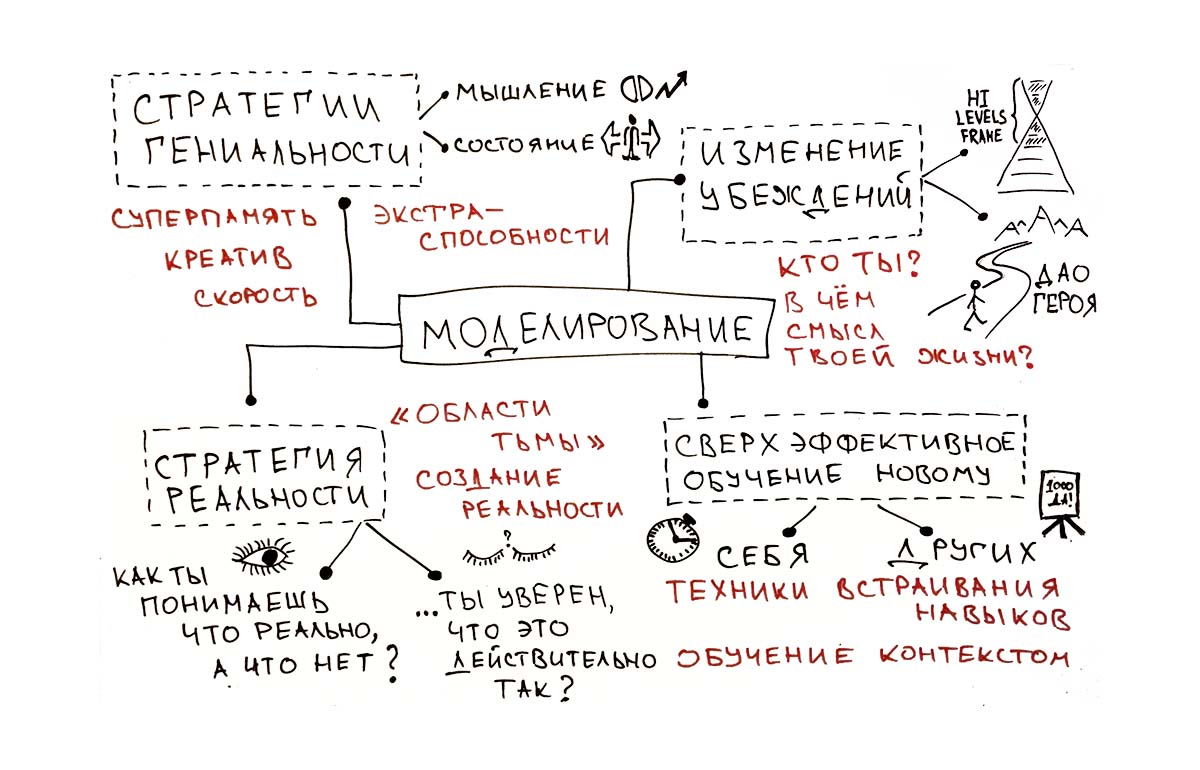 СТРАТЕГИИ
ГЕНИАЛЬНОСТИ
МЫШЛЕНИЕ
СОСТОЯНИЕ
СУПЕРПАМЯТЬ
КРЕАТИВ
СКОРОСТЬ
ЭКСТРА-
СПОСОБНОСТИ
ИЗМЕНЕНИЕ
УБЕЖДЕНИЙ
HI
LEVELS
FRAME
КТО ТЫ?
В ЧЁМ
СМЫСЛ
ТВОЕЙ ЖИЗНИ?
ДАО
ГЕРОЯ
МОДЕЛИРОВАНИЕ
СТРАТЕГИЯ
РЕАЛЬНОСТИ
«ОБЛАСТИ
ТЬМЫ»
СОЗДАНИЕ
РЕАЛЬНОСТИ
КАК ТЫ
ПОНИМАЕШЬ
ЧТО РЕАЛЬНО,
А ЧТО НЕТ?
?
...ТЫ УВЕРЕН,
ЧТО ЭТО
ДЕЙСТВИТЕЛЬНО
ТАК?
СВЕРХЭФФЕКТИВНОЕ
ОБУЧЕНИЕ НОВОМУ
1000
ДА!
СЕБЯ
ДРУГИХ
ТЕХНИКИ ВСТРАИВАНИЯ
НАВЫКОВ
ОБУЧЕНИЕ КОНТЕКСТОМ